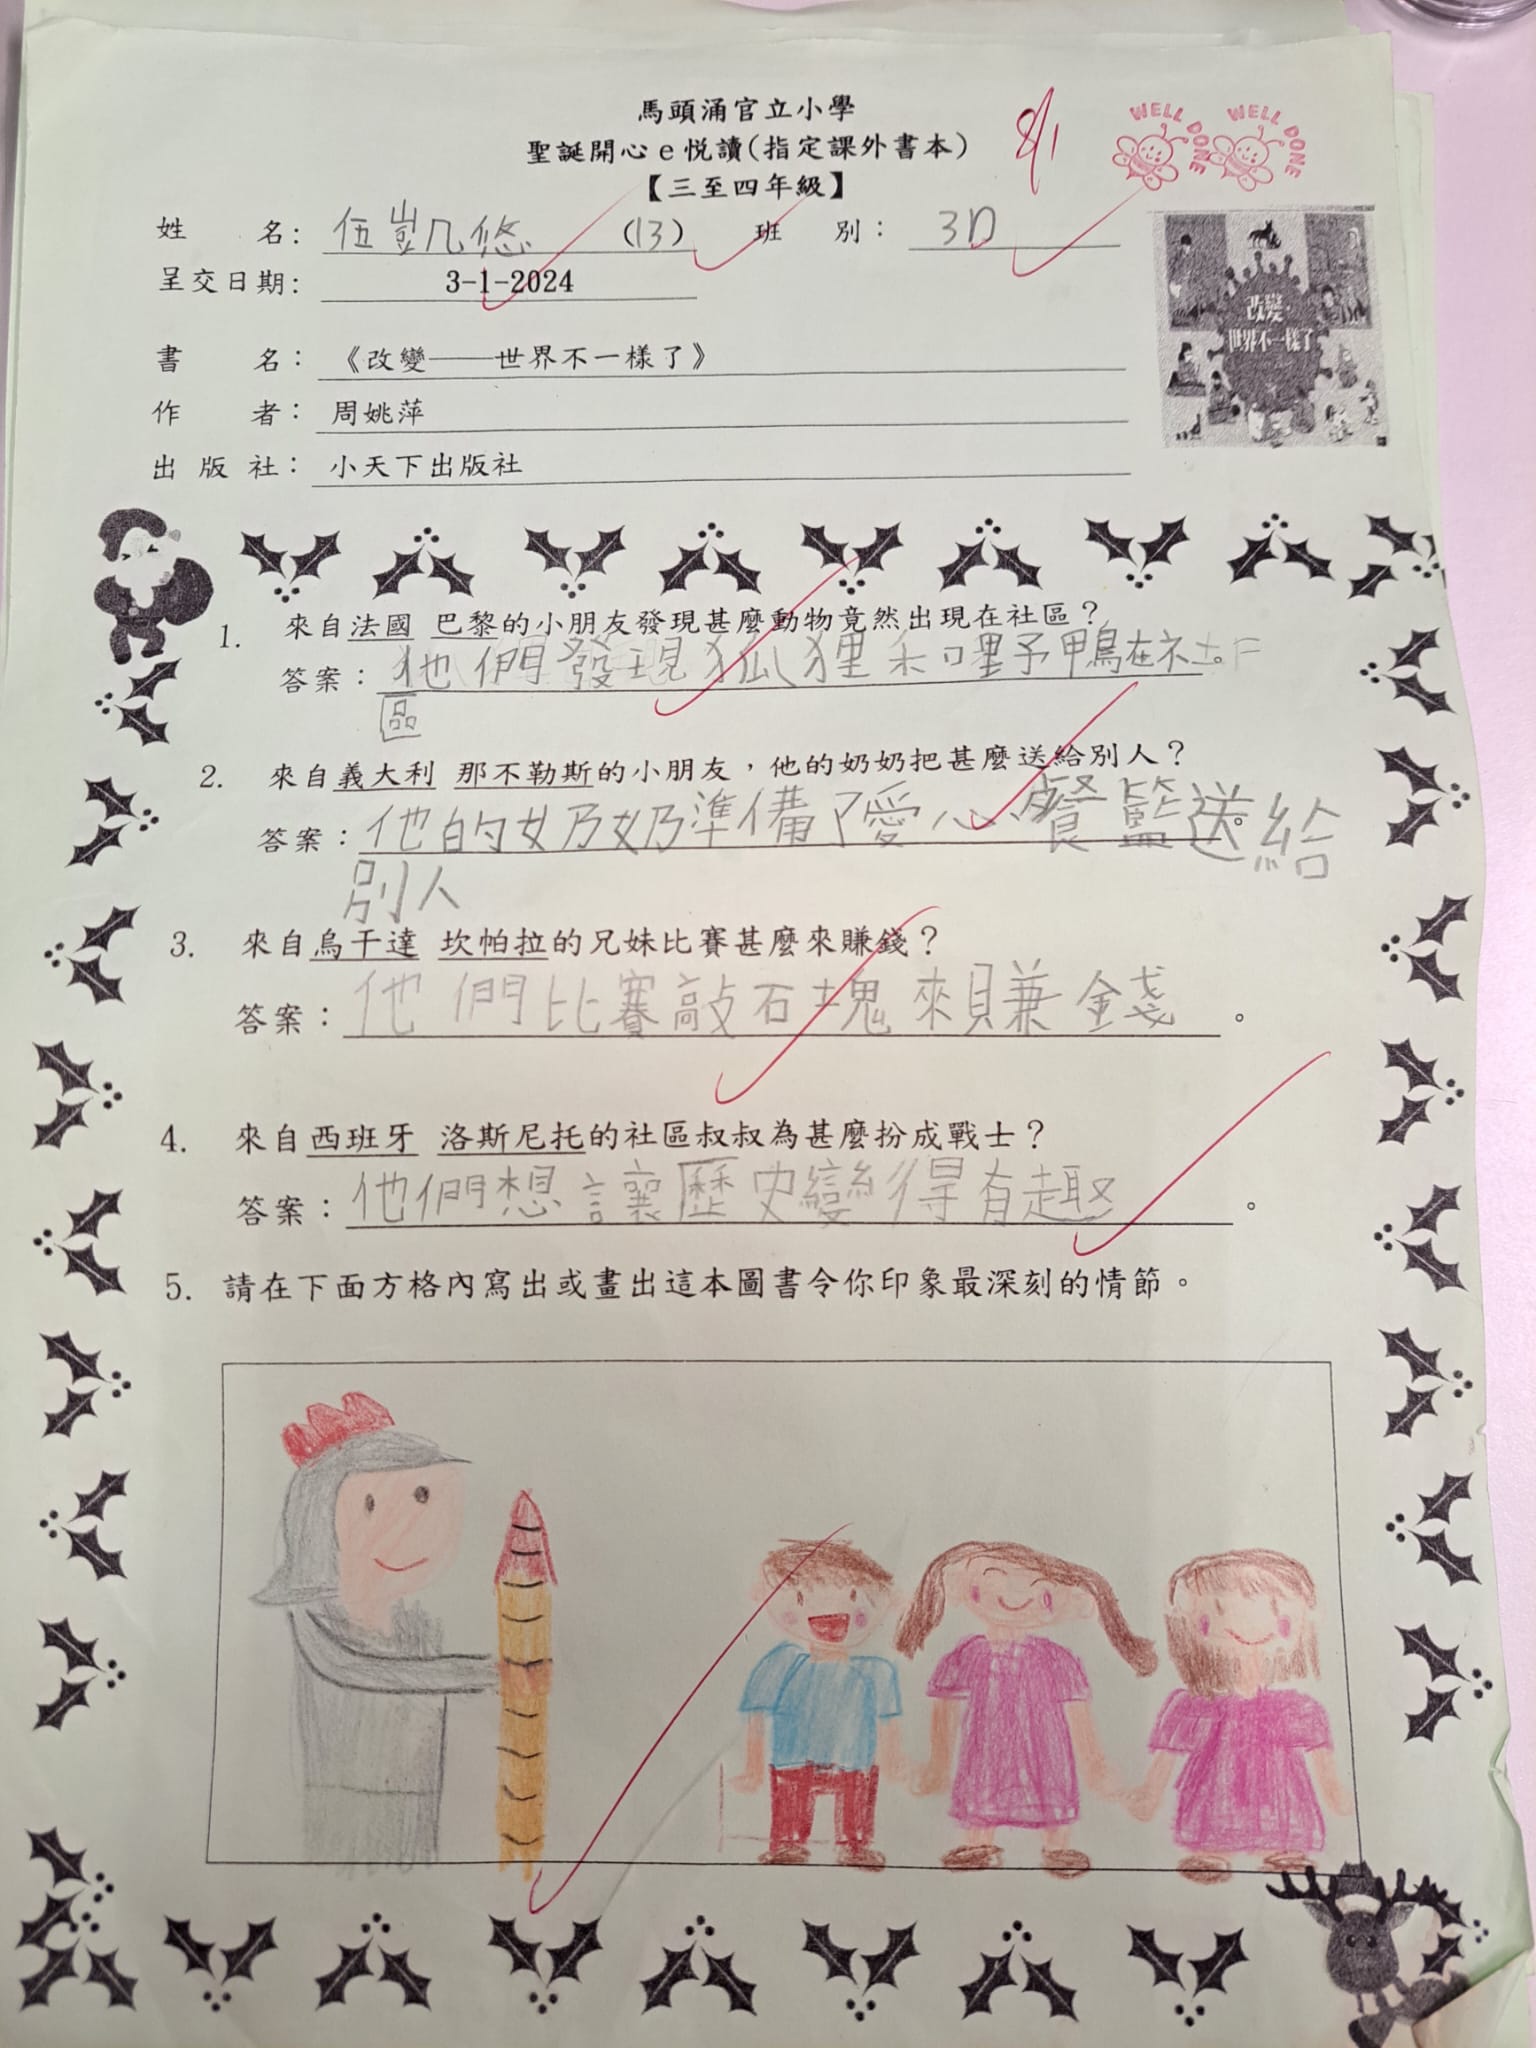 馬頭涌官立小學
聖誕開心e悅讀(指定課外書本)
8/1
WELL DONE WELL DONE
【三至四年級】
姓 名: 伍凱悠 (13) 班 別: 3D
呈交日期: 3-1-2024
書 名:《改變——世界不一樣了》
作 者:周姚萍
出 版 社:小天下出版社
改變,
世界不一樣了
1. 來自法國 巴黎的小朋友發現甚麼動物竟然出現在社區?
答案:他們發現狐狸和野鴨在社
區。
2. 來自義大利 那不勒斯的小朋友,他的奶奶把甚麼送給別人?
答案:他的奶奶準備了愛心餐籃送給
別人。
3. 來自烏干達 坎帕拉的兄妹比賽甚麼來賺錢?
答案:他們比賽敲石塊來賺錢。
4. 來自西班牙 洛斯尼托的社區叔叔為甚麼扮成戰士?
答案:他們想讓歷史變得有趣。
5. 請在下面方格內寫出或畫出這本圖書令你印象最深刻的情節。